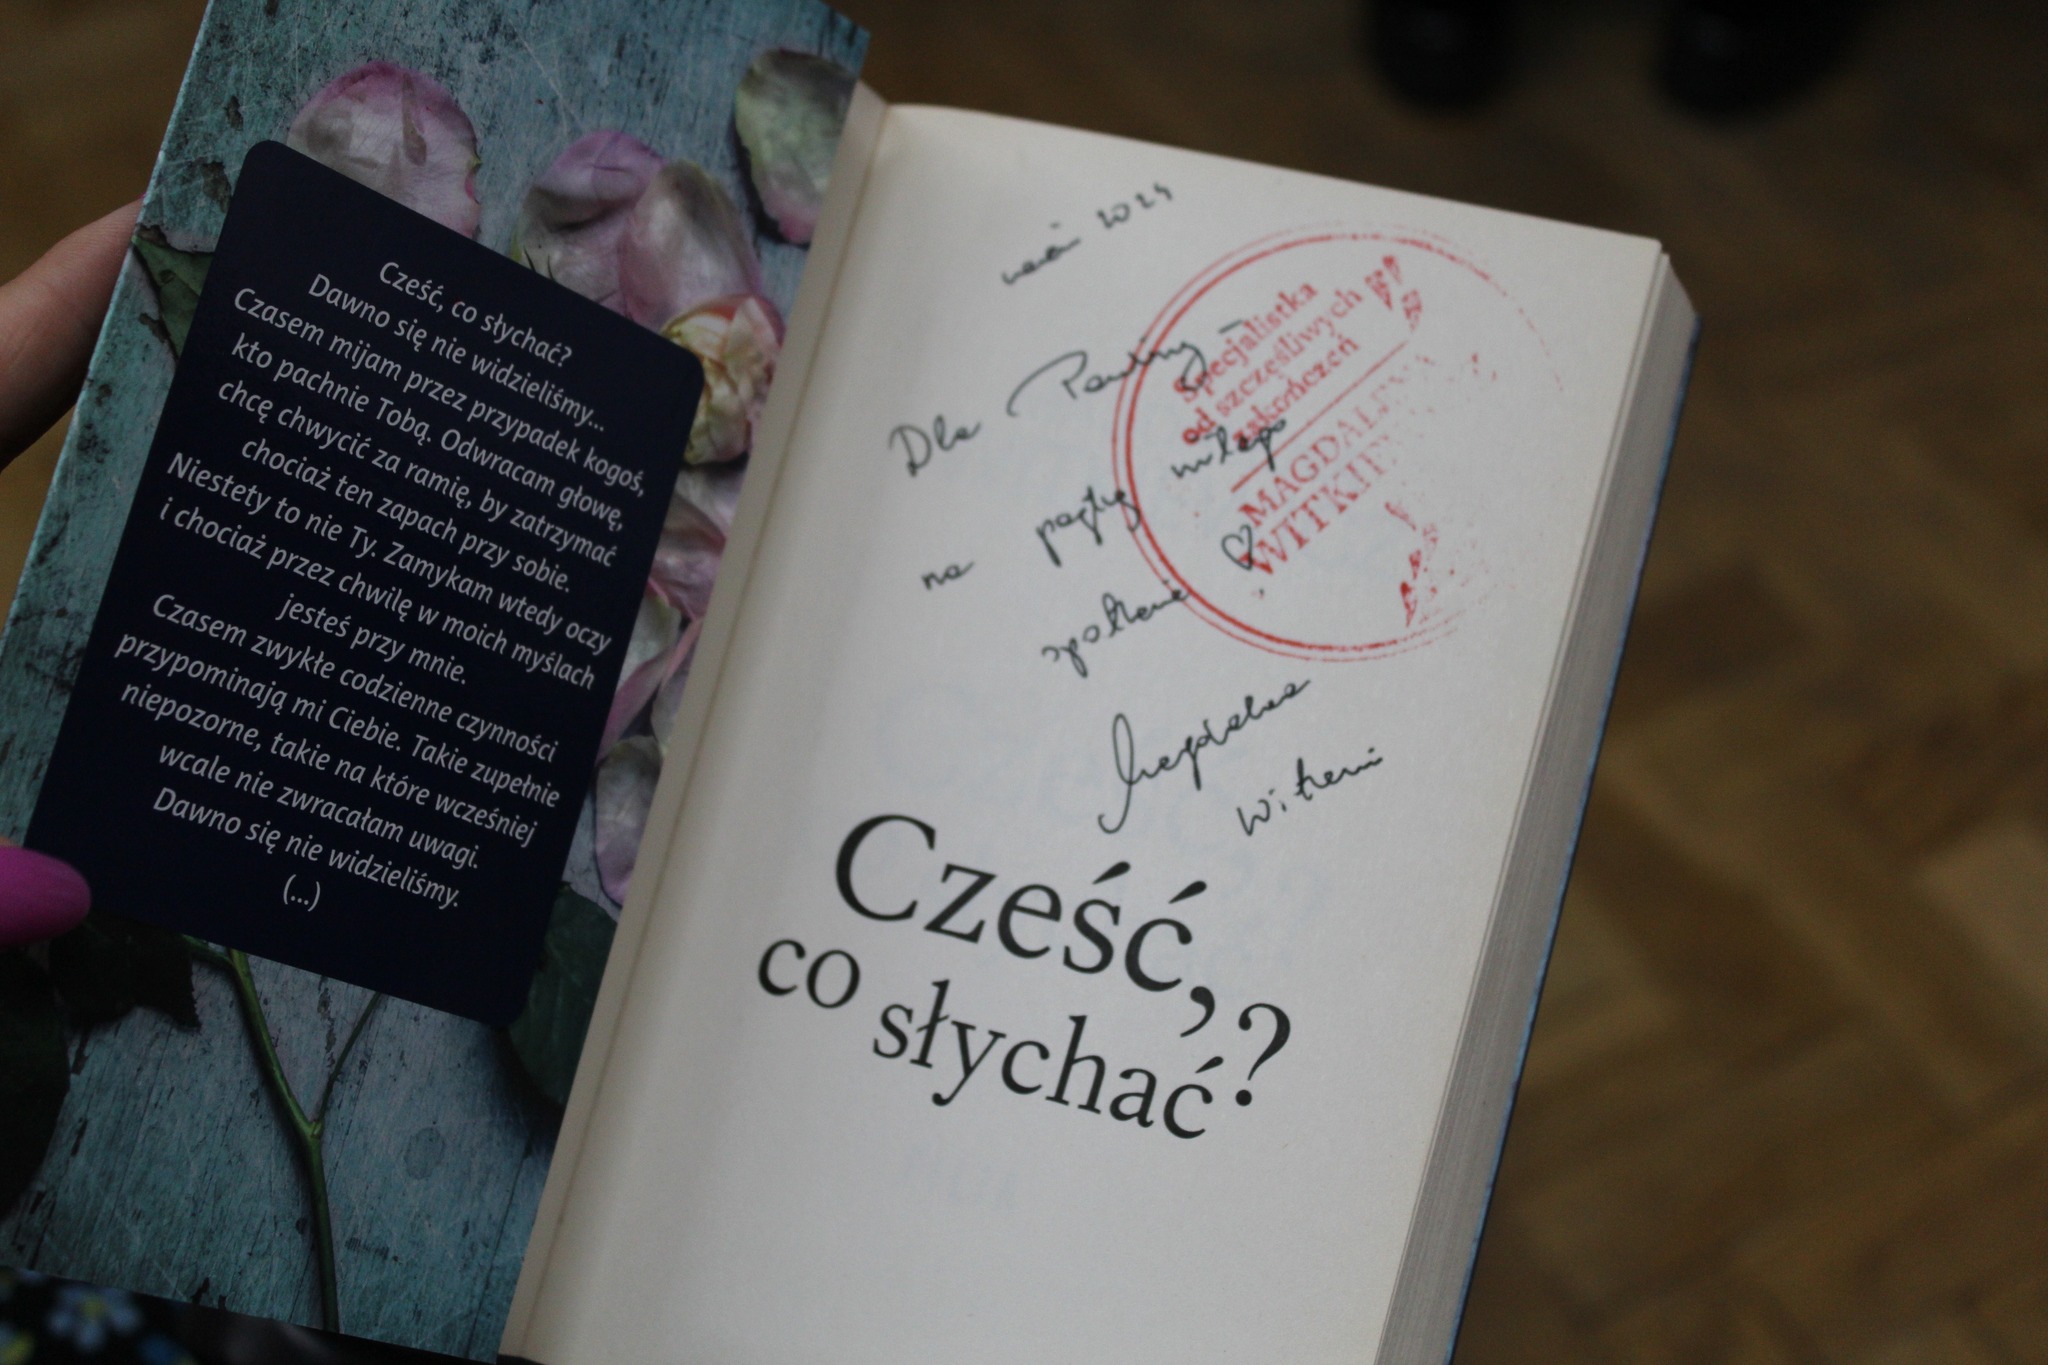 Cześć, co słychać?
Dawno się nie widzieliśmy...
Czasem mijam przez przypadek kogoś,
kto pachnie Tobą. Odwracam głowę,
chcę chwycić za ramię, by zatrzymać
chociaż ten zapach przy sobie.
Niestety to nie Ty. Zamykam wtedy oczy
i chociaż przez chwilę w moich myślach
jesteś przy mnie.
Czasem zwykłe codzienne czynności
przypominają mi Ciebie. Takie zupełnie
niepozorne, takie na które wcześniej
wcale nie zwracałam uwagi.
Dawno się nie widzieliśmy.
(...)
2024
Dla
na miłego
spotkania
Magdalena
Specjalistka
od szczęśliwych
zakończeń
MAGDALENA
Cześć,
co słychać?